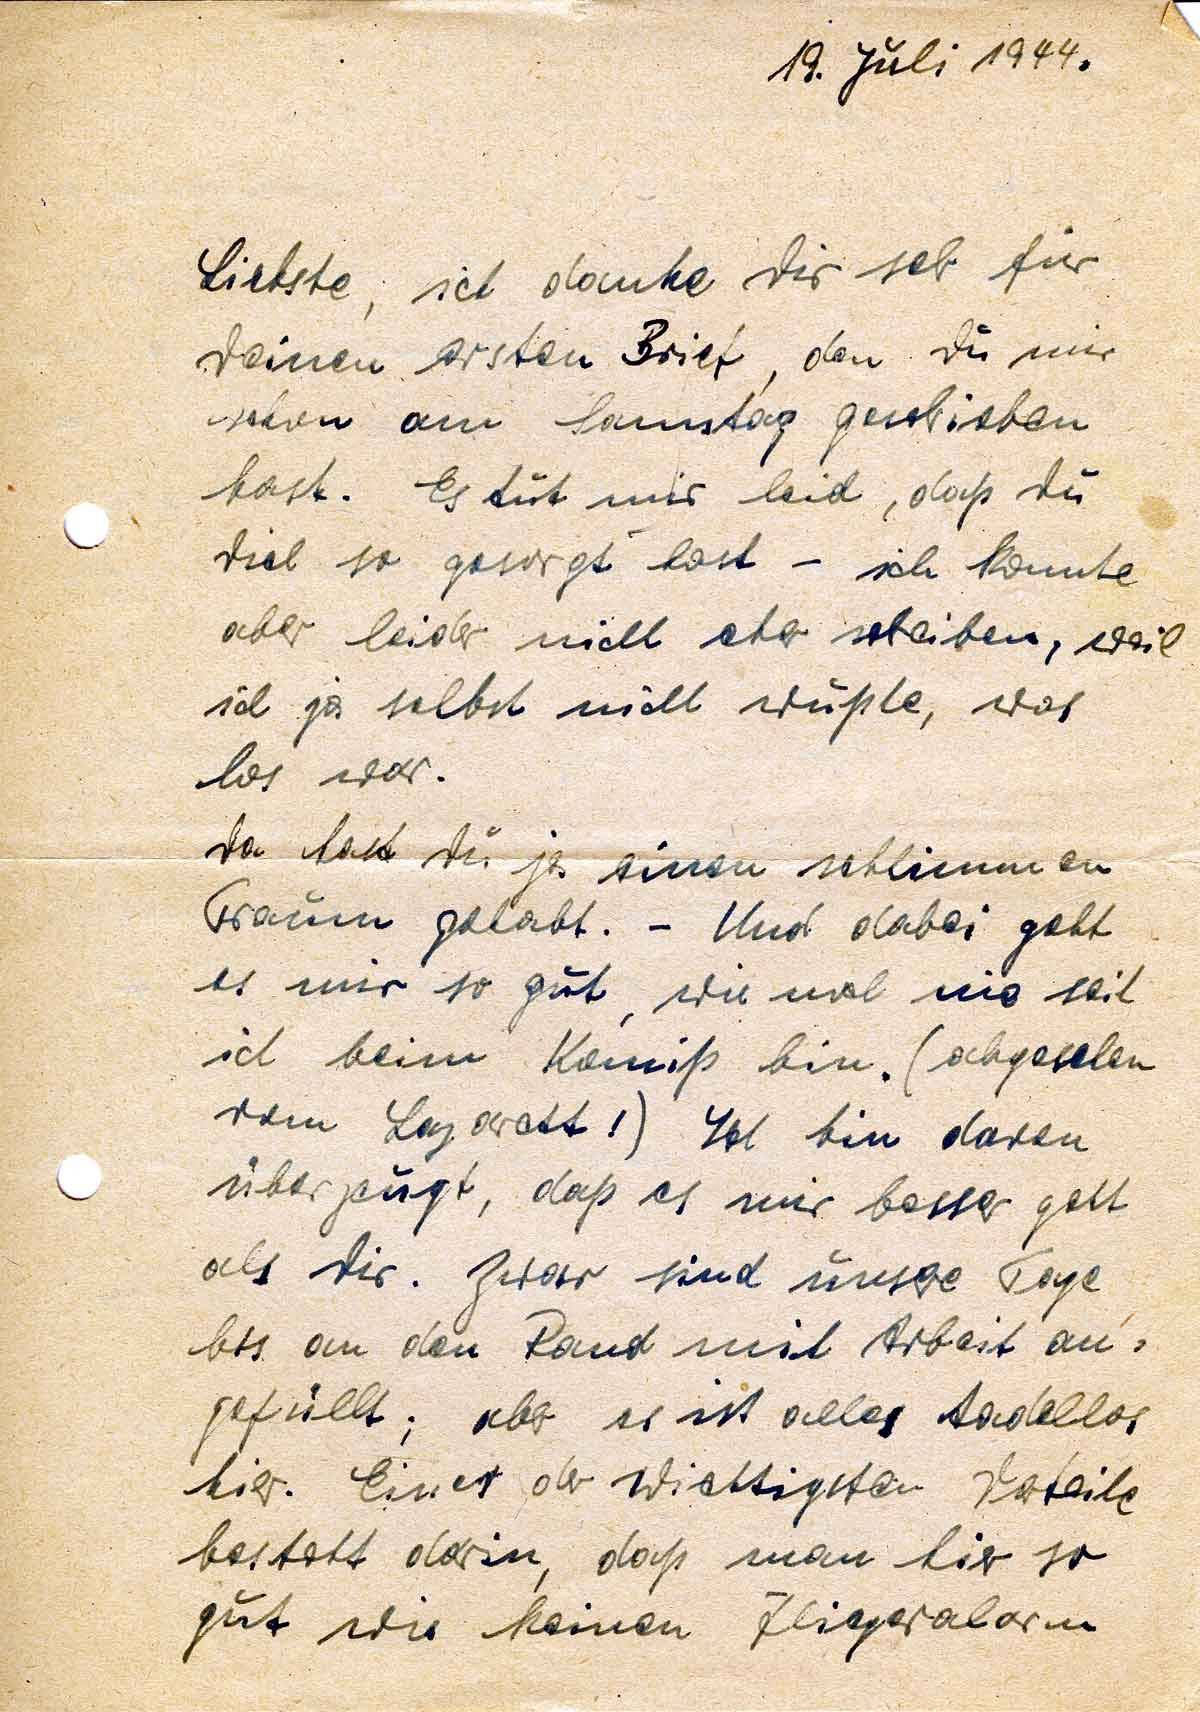 19. Juli 1944.
Liebste, ich danke Dir sehr für
Deinen ersten Brief, den Du mir
schon am Samstag geschrieben
hast. Es tut mir leid, daß Du
Dich so gesorgt hast – ich konnte
aber leider nicht eher schreiben, weil
ich ja selbst nicht wußte, was
los war.
Da hast Du ja einen schlimmen
Traum gehabt. – Und dabei geht
es mir so gut, wie noch nie seit
ich beim Komiß bin. (abgesehen
vom Lazarett!) Ich bin davon
überzeugt, daß es mir besser geht
als Dir. Zwar sind unsere Tage
bis an den Rand mit Arbeit an-
gefüllt; aber es ist alles tadellos
hier. Einer der wichtigsten Vorteile
besteht darin, daß man hier so
gut wie keinen Fliegeralarm